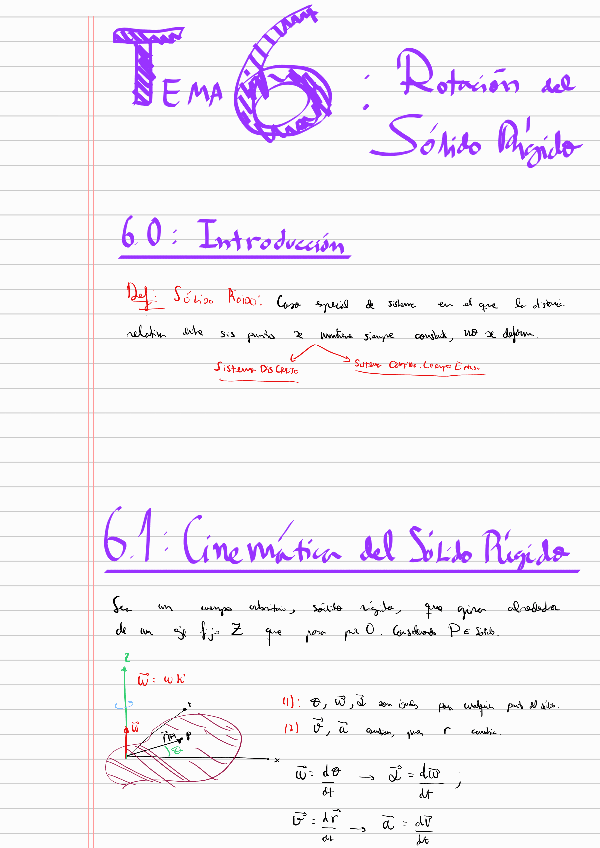 TEMA 6: Rotación del
Sólido Rígido
6.0: Introducción
Def: Sólido Rígido: Caso especial de sistema en el que la distancia
relativa entre sus puntos se mantiene siempre constante, no se deforma.
Sistema DISCRETO
Sistema
6.1: Cinemática del Sólido Rígido
Sea un cuerpo arbitrario, sólido rígido, que gira alrededor
de un eje fijo Z que pasa por O. Considerando P ∈ Sólido.
Z
w⃗ = w k⃗
(1): θ, w⃗, α⃗ son iguales para cualquier punto del sólido.
w⃗
P
(2) v⃗, a⃗ cambian, pues r cambia.
x
w⃗ = dθ/dt → α⃗ = dw⃗/dt ;
v⃗ = dr⃗/dt → a⃗ = dv⃗/dt